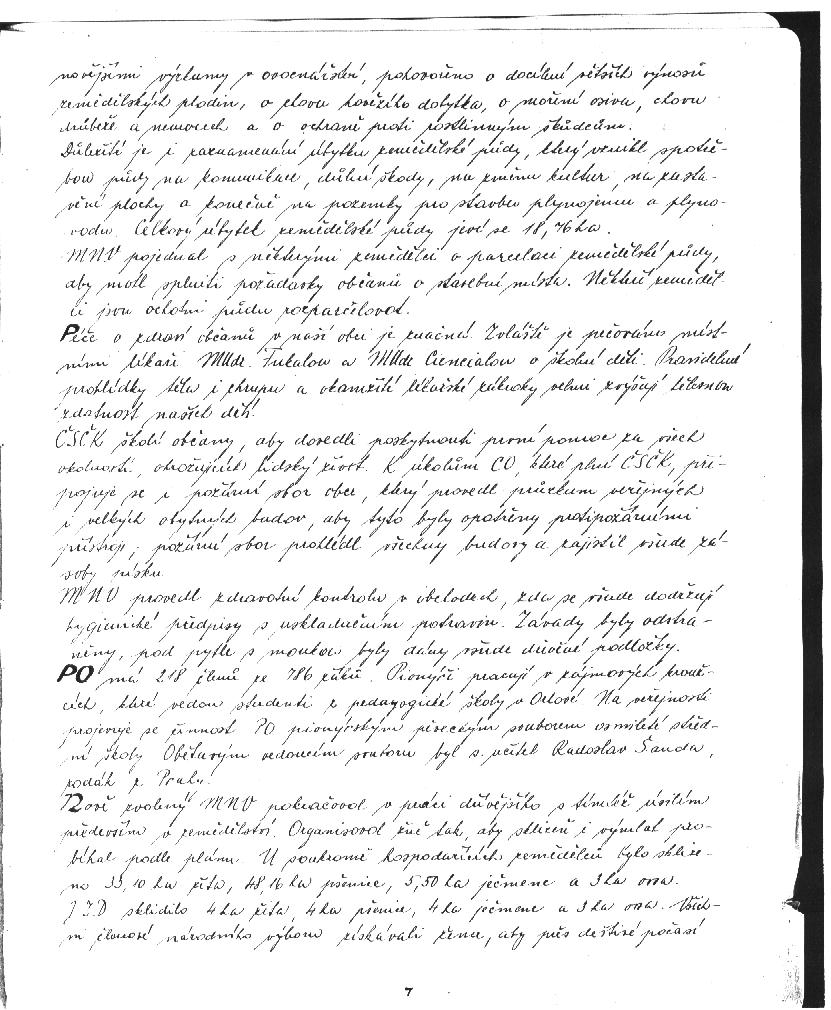 novějšími výzkumy v ovocnářství, pohovořeno o docílení větších výnosů
zemědělských plodin, o chovu hovězího dobytka, o moření osiva, chovu
drůbeže a nemocech a o ochraně proti rostlinným škůdcům.
Důležité je i zaznamenání úbytku zemědělské půdy, který vznikl spotře-
bou půdy na komunikace, důlní škody, na změnu kultur, na zasta-
vění plochy a konečně na pozemky pro stavbu plynojemu a plyno-
vodu. Celkový úbytek zemědělské půdy jeví se 18,76 ha.
MNV pojednal s některými zemědělci o parcelaci zemědělské půdy,
aby mohl splniti požadavky občanů o stavební místa. Někteří zeměděl-
ci jsou ochotni půdu rozparcelovat.
Péče o zdraví občanů v naší obci je značná. Zvláště je pečováno míst-
ními lékaři MUdr. Fukalou a MUdr Ciencialou o školní děti. Pravidelné
prohlídky těla i chrupu a okamžité lékařské zákroky velmi zvyšují tělesnou
zdatnost našich dětí.
ČSČK školí občany, aby dovedli poskytnouti první pomoc za všech
okolností, ohrožujících lidský život. K úkolům CO, které plní ČSČK, při-
pojuje se i požární sbor obce, který provedl průzkum veřejných
i velkých obytných budov, aby tyto byly opatřeny protipožárními
přístroji; požární sbor prohlédl všechny budovy a zajistil všude zá-
soby písku.
MNV provedl zdravotní kontrolu v obchodech, zda se všude dodržují
hygienické předpisy s uskladněním potravin. Závady byly odstra-
něny, pod pytle s moukou byly dány všude dřevěné podložky.
PO má 218 členů ze 786 žáků. Pionýři pracují v zájmových krouž-
cích, které vedou studenti z pedagogické školy v Orlové. Na veřejnosti
projevuje se činnost PO pionýrským pěveckým souborem osmileté střed-
ní školy. Obětavým vedoucím souboru byl s. učitel Radoslav Šanda,
rodák z Prahy.
Nově zvolený MNV pokračoval v práci dřívějšího s tímtéž úsilím
především v zemědělství. Organisoval žně tak, aby sklizeň i výmlat pro-
bíhal podle plánu. U soukromě hospodařících zemědělců bylo sklize-
no 33,10 ha žita, 48,16 ha pšenice, 5,50 ha ječmene a 3 ha ovsa.
JZD sklidilo 4 ha žita, 4 ha pšenice, 4 ha ječmene a 3 ha ovsa. Všich-
ni členové národního výboru získávali žence, aby přes deštivé počasí
7